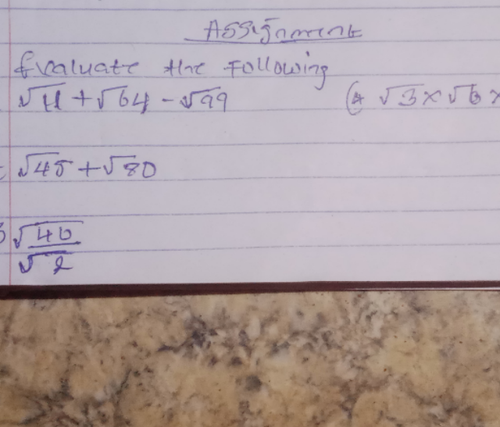 Assignment
Evaluate the following
√11 + √64 - √99
(4 √3 × √6 ×
√45 + √80
√40
√2